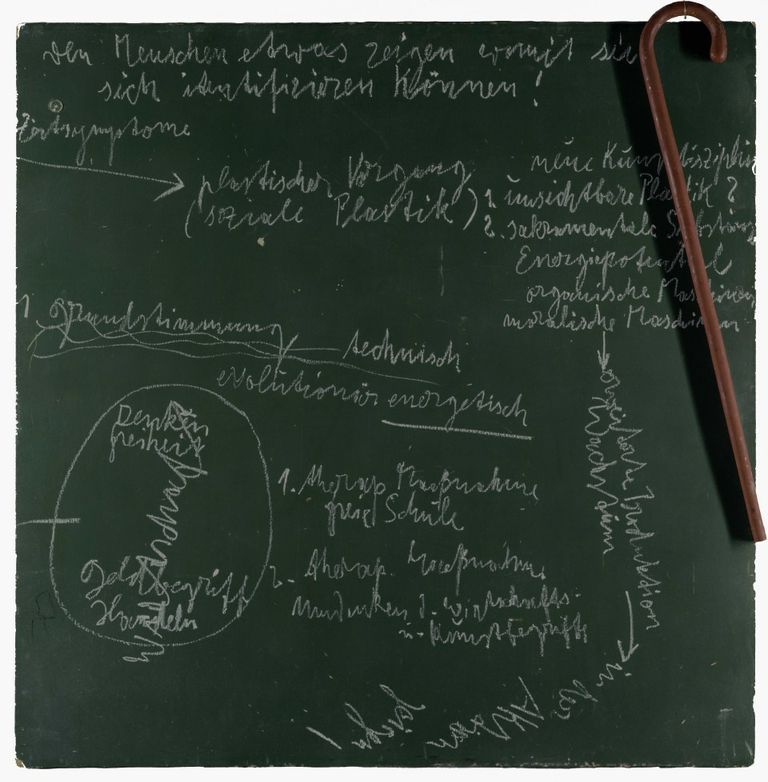 den Menschen etwas zeigen womit sie
sich identifizieren können!
Zeitsymptome
plastischer Vorgang
(soziale Plastik)
neue Kunstdisziplin
1. unsichtbare Plastik?
2. sakramentale Substanz
Energiepotential
organische Maschinen
moralische Maschinen
1 Grundstimmung
technisch
evolutionär energetisch
Denken
freiheit
Geldbegriff
Handeln
1. therap Maßnahme
freie Schule
2. therap. Maßnahme
Umdenken d. wirtschafts-
u. Kunstbegriffs
Produktion
Wachstum
in den